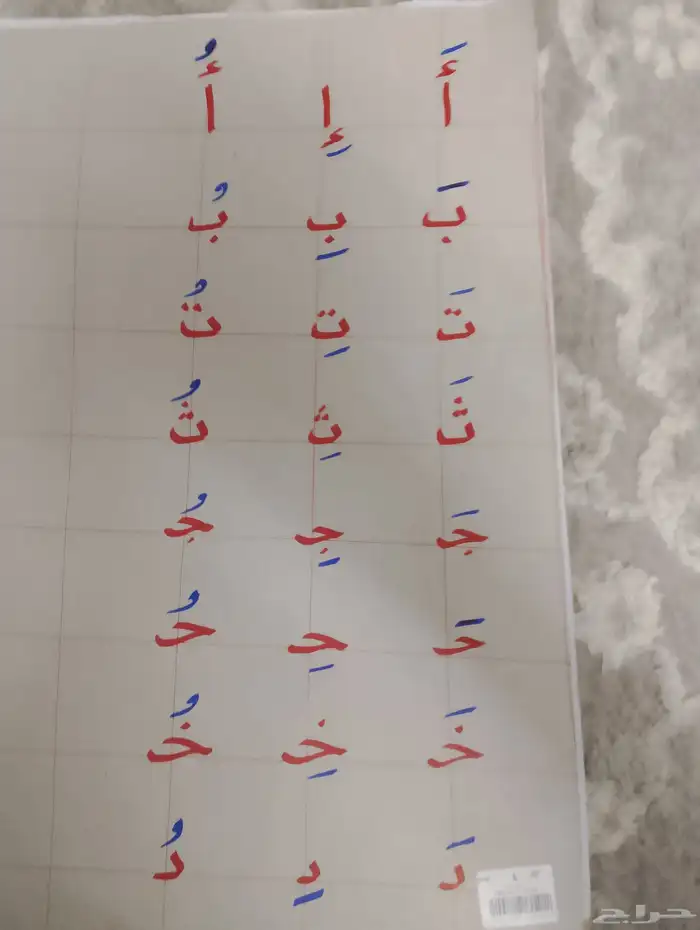 أَ إِ أُ
بَ بِ بُ
تَ تِ تُ
ثَ ثِ ثُ
جَ جِ جُ
حَ حِ حُ
خَ خِ خُ
دَ دِ دُ
حراج